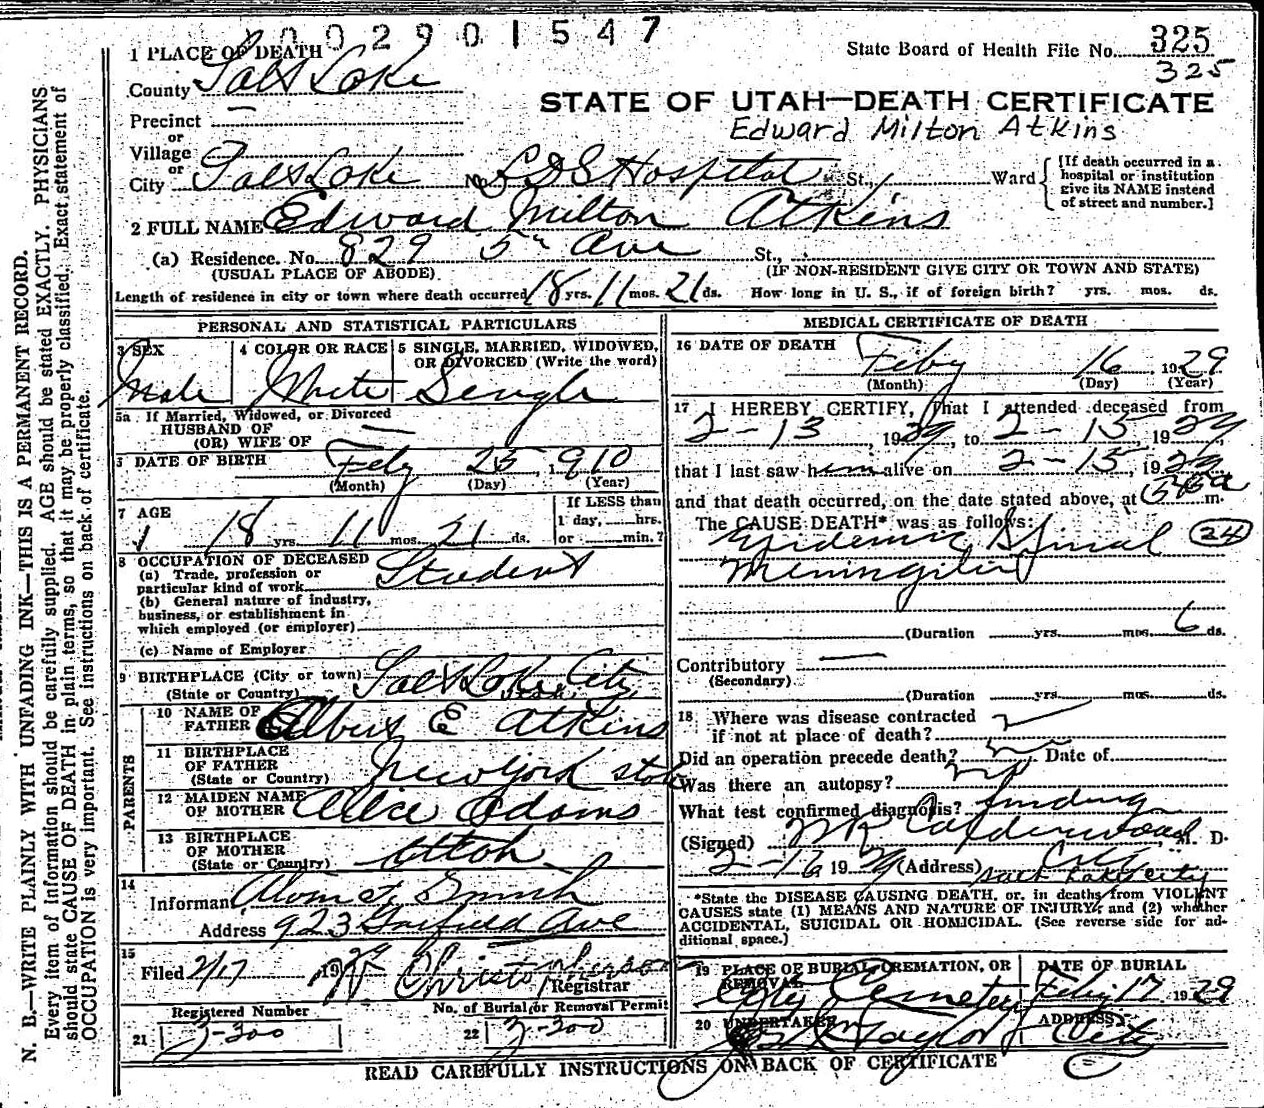 002901547
State Board of Health File No. 325
325
1 PLACE OF DEATH
County Salt Lake
STATE OF UTAH—DEATH CERTIFICATE
Edward Milton Atkins
Precinct —
or
Village
or
City Salt Lake No. LDS Hospital St., Ward
[If death occurred in a hospital or institution give its NAME instead of street and number.]
2 FULL NAME Edward Milton Atkins
(a) Residence. No. 829 5th Ave St.,
(USUAL PLACE OF ABODE) (IF NON-RESIDENT GIVE CITY OR TOWN AND STATE)
Length of residence in city or town where death occurred 18 yrs. 11 mos. 21 ds. How long in U. S., if of foreign birth? yrs. mos. ds.
PERSONAL AND STATISTICAL PARTICULARS
3 SEX Male
4 COLOR OR RACE White
5 SINGLE, MARRIED, WIDOWED, OR DIVORCED (Write the word) Single
5a If Married, Widowed, or Divorced
HUSBAND OF —
(OR) WIFE OF
DATE OF BIRTH Feby 25, 1910
(Month) (Day) (Year)
7 AGE 18 yrs. 11 mos. 21 ds.
If LESS than
1 day, hrs.
or min.?
8 OCCUPATION OF DECEASED
(a) Trade, profession or particular kind of work Student
(b) General nature of industry, business, or establishment in which employed (or employer)
(c) Name of Employer
9 BIRTHPLACE (City or town) Salt Lake City
(State or Country) Utah
PARENTS
10 NAME OF FATHER E Atkins
11 BIRTHPLACE OF FATHER (State or Country) New York state
12 MAIDEN NAME OF MOTHER Alice Adams
13 BIRTHPLACE OF MOTHER (State or Country) Utah
14
Informant Smith
Address 923 Garfield Ave
15
Filed 2/17 1929 Christopherson
Registrar
Registered Number
21 3-300
No. of Burial or Removal Permit
22 3-300
MEDICAL CERTIFICATE OF DEATH
16 DATE OF DEATH
Feby 16, 1929
(Month) (Day) (Year)
17 I HEREBY CERTIFY, That I attended deceased from
2-13, 1929, to 2-15, 1929,
that I last saw him alive on 2-15, 1929
and that death occurred, on the date stated above, at m.
The CAUSE DEATH* was as follows:
Epidemic Spinal 24
Meningitis
(Duration yrs. mos. 6 ds.
Contributory —
(Secondary)
(Duration yrs. mos. ds.
18 Where was disease contracted
if not at place of death?
Did an operation precede death? no Date of
Was there an autopsy? no
What test confirmed diagnosis? finding
(Signed) Calderwood, M. D.
2-16 1929 (Address) Salt Lake City
*State the DISEASE CAUSING DEATH, or, in deaths from VIOLENT
CAUSES state (1) MEANS AND NATURE OF INJURY, and (2) whether
ACCIDENTAL, SUICIDAL OR HOMICIDAL. (See reverse side for ad-
ditional space.)
19 PLACE OF BURIAL, CREMATION, OR REMOVAL City Cemetery
DATE OF BURIAL Feby 17 1929
20 UNDERTAKER Taylor
ADDRESS City
READ CAREFULLY INSTRUCTIONS ON BACK OF CERTIFICATE
N. B.—WRITE PLAINLY WITH UNFADING INK—THIS IS A PERMANENT RECORD.
Every item of information should be carefully supplied. AGE should be stated EXACTLY. PHYSICIANS
should state CAUSE OF DEATH in plain terms, so that it may be properly classified. Exact statement of
OCCUPATION is very important. See instructions on back of certificate.